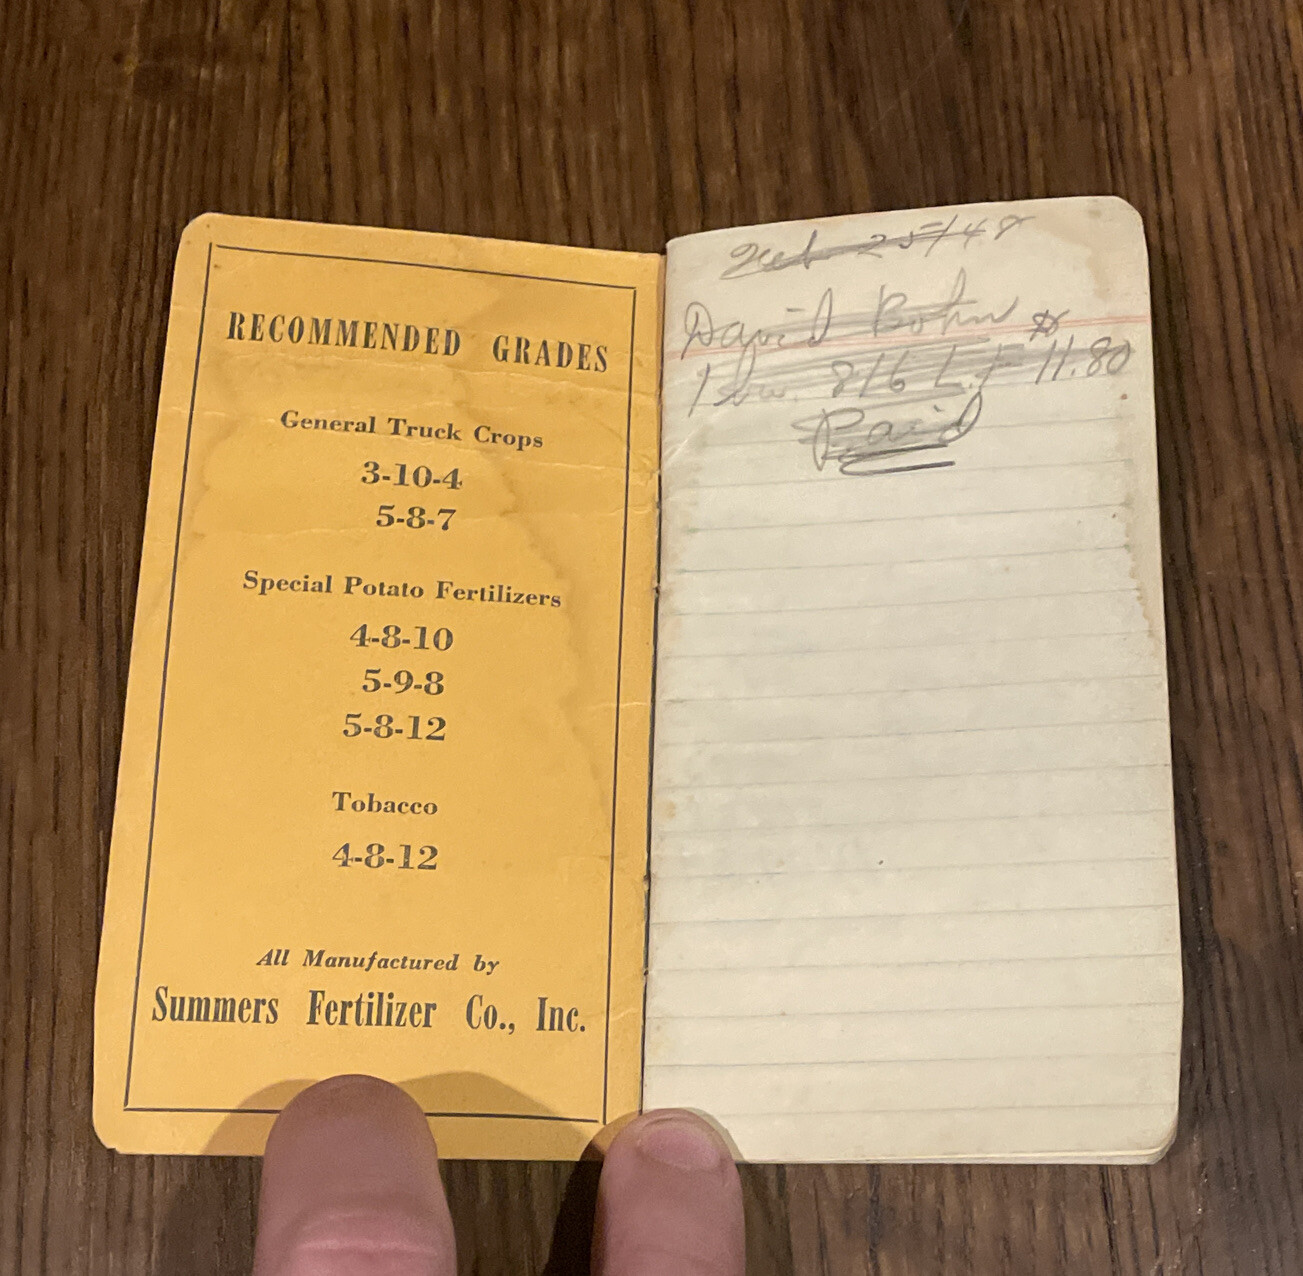 RECOMMENDED GRADES
General Truck Crops
3-10-4
5-8-7
Special Potato Fertilizers
4-8-10
5-9-8
5-8-12
Tobacco
4-8-12
All Manufactured by
Summers Fertilizer Co., Inc.
Feb 25/48
David Bohn
1 816 $11.80
Paid